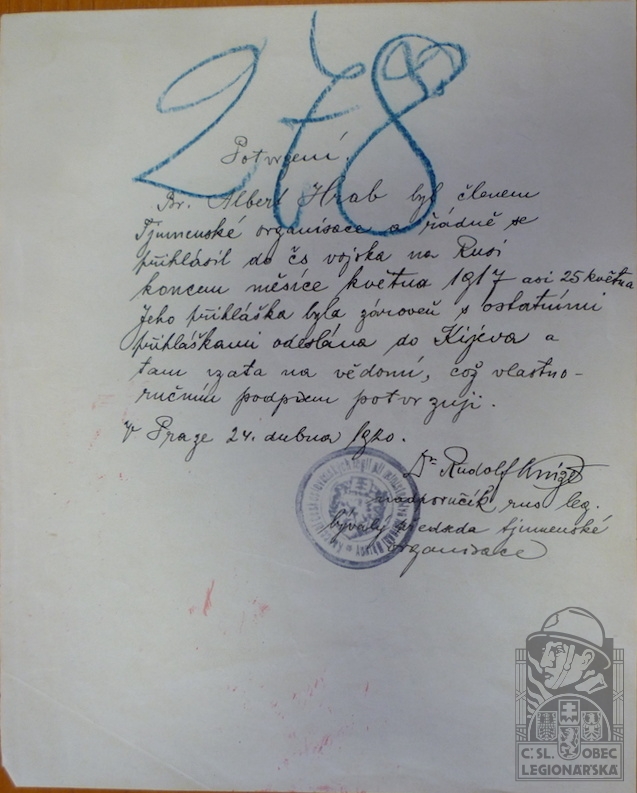 278
Potvrzení.
Br. Albert Hrab byl členem
Tjumenské organisace a řádně se
přihlásil do čs vojska na Rusi
koncem měsíce května 1917 asi 25 května
Jeho přihláška byla zároveň s ostatními
přihláškami odeslána do Kijeva a
tam vzata na vědomí, což vlastno-
ručním podpisem potvrzuji.
V Praze 24. dubna 1920.
Dr Rudolf
nadporučík rus leg.
bývalý předseda tjumenské
organisace
Č.SL. OBEC
LEGIONÁŘSKÁ